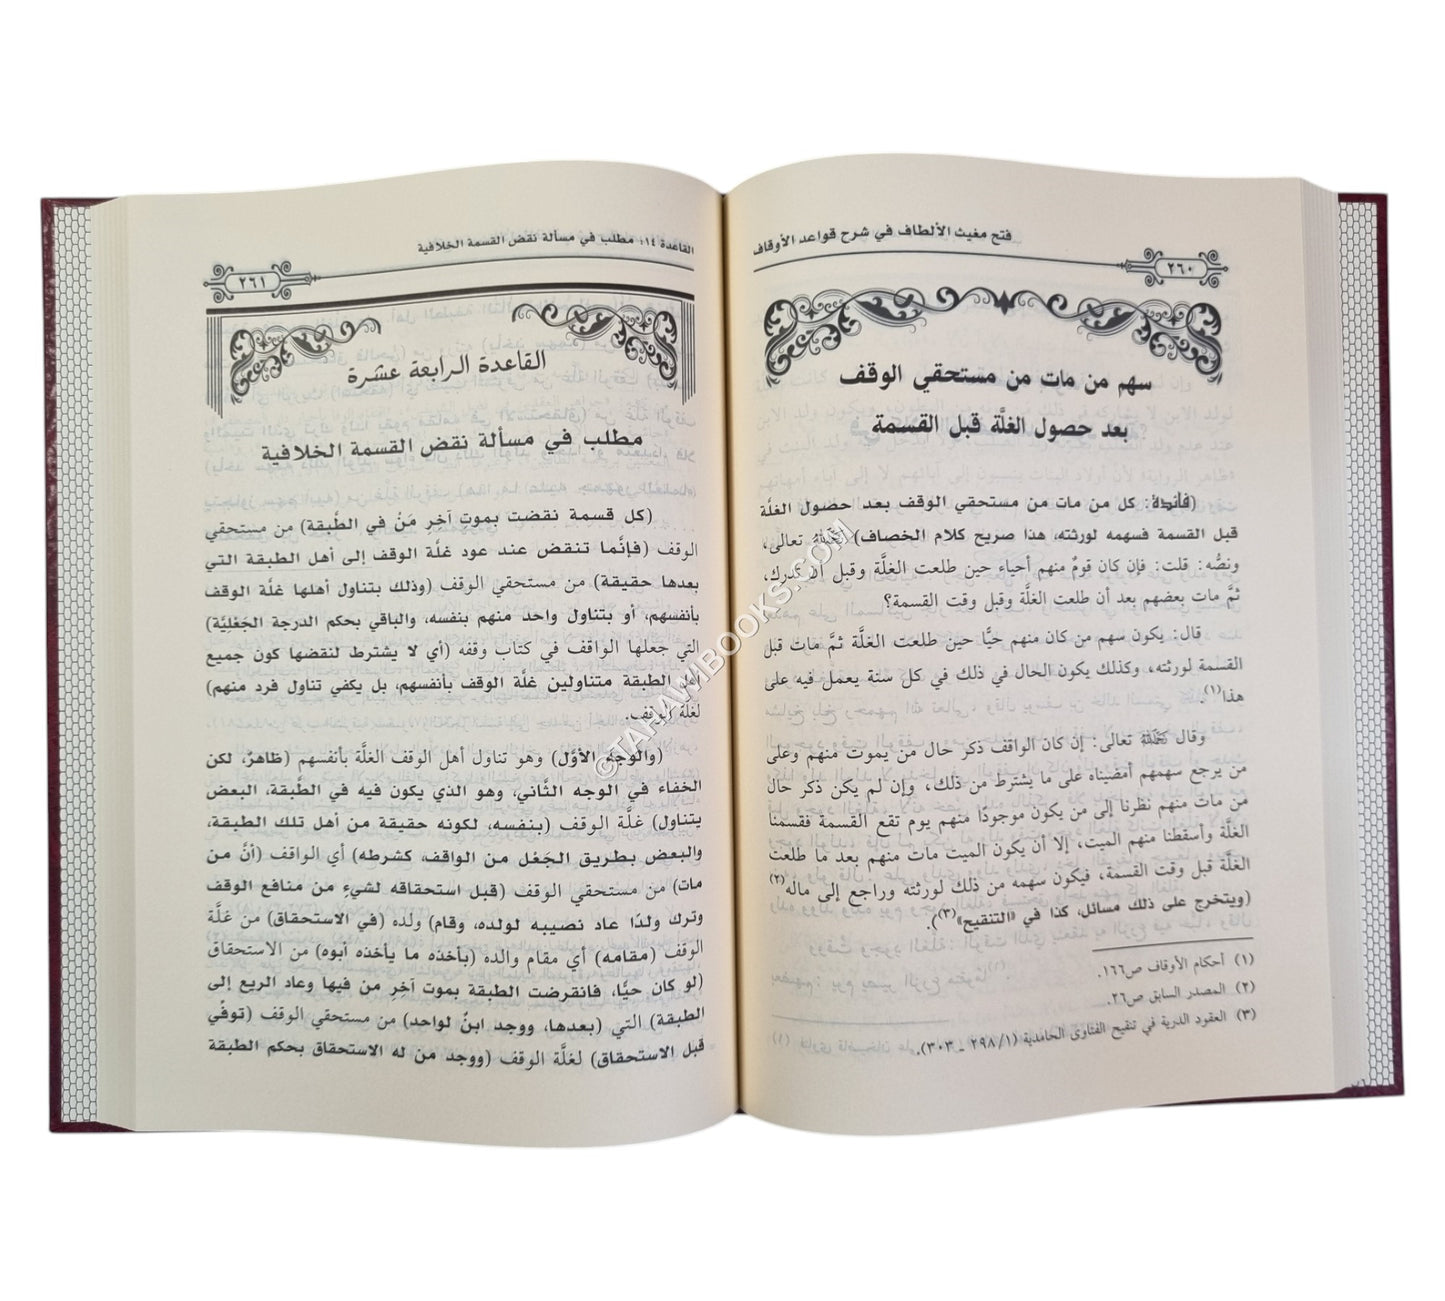 فتح مغيث الألطاف في شرح قواعد الأوقاف
٢٦٠
سهم من مات من مستحقي الوقف
بعد حصول الغلَّة قبل القسمة
(فائدة: كل من مات من مستحقي الوقف بعد حصول الغلَّة
قبل القسمة فسهمه لورثته، هذا صريح كلام الخصاف) رَحِمَهُ اللهُ تعالى،
ونصُّه: قلت: فإن كان قومٌ منهم أحياء حين طلعت الغلَّة وقبل أن تدرك،
ثمَّ مات بعضهم بعد أن طلعت الغلَّة وقبل وقت القسمة؟
قال: يكون سهم من كان منهم حيًّا حين طلعت الغلَّة ثمَّ مات قبل
القسمة لورثته، وكذلك يكون الحال في ذلك في كل سنة يعمل فيه على
هذا(١).
وقال رَحِمَهُ اللهُ تعالى: إن كان الواقف ذكر حال من يموت منهم وعلى
من يرجع سهمهم أمضيناه على ما يشترط من ذلك، وإن لم يكن ذكر حال
من مات منهم نظرنا إلى من يكون موجودًا منهم يوم تقع القسمة فقسمنا
الغلَّة وأسقطنا منهم الميت، إلا أن يكون الميت مات منهم بعد ما طلعت
الغلَّة قبل وقت القسمة، فيكون سهمه من ذلك لورثته وراجع إلى ماله(٢)
(ويتخرج على ذلك مسائل، كذا في «التنقيح»(٣)).
(١) أحكام الأوقاف ص١٦٦.
(٢) المصدر السابق ص٢٦.
(٣) العقود الدرية في تنقيح الفتاوى الحامدية (٢٩٨/١ - ٣٠٣).
القاعدة ١٤: مطلب في مسألة نقض القسمة الخلافية
٢٦١
القاعدة الرابعة عشرة
مطلب في مسألة نقض القسمة الخلافية
(كل قسمة نقضت بموتِ آخِرِ مَنْ في الطَّبقة) من مستحقي
الوقف (فإنَّما تنقض عند عود غلَّة الوقف إلى أهل الطبقة التي
بعدها حقيقة) من مستحقي الوقف (وذلك بتناول أهلها غلَّة الوقف
بأنفسهم، أو بتناول واحد منهم بنفسه، والباقي بحكم الدرجة الجَعْلِيَّة)
التي جعلها الواقف في كتاب وقفه (أي لا يشترط لنقضها كون جميع
أهل الطبقة متناولين غلَّة الوقف بأنفسهم، بل يكفي تناول فرد منهم)
لغلَّة الوقف.
(والوجه الأوَّل) وهو تناول أهل الوقف الغلَّة بأنفسهم (ظاهرٌ، لكن
الخفاء في الوجه الثَّاني، وهو الذي يكون فيه في الطَّبقة، البعض
يتناول) غلَّة الوقف (بنفسه، لكونه حقيقة من أهل تلك الطبقة،
والبعض بطريق الجَعْل من الواقف، كشرطه) أي الواقف (أنَّ من
مات) من مستحقي الوقف (قبل استحقاقه لشيءٍ من منافع الوقف
وترك ولدًا عاد نصيبه لولده، وقام) ولده (في الاستحقاق) من غلَّة
الوقف (مقامه) أي مقام والده (بأخذه ما يأخذه أبوه) من الاستحقاق
(لو كان حيًّا، فانقرضت الطبقة بموت آخِرِ من فيها وعاد الريع إلى
الطبقة) التي (بعدها، ووجد ابنٌ لواحد) من مستحقي الوقف (توفِّي
قبل الاستحقاق) لغلَّة الوقف (ووجد من له الاستحقاق بحكم الطبقة
©TARAWIBOOKS.COM